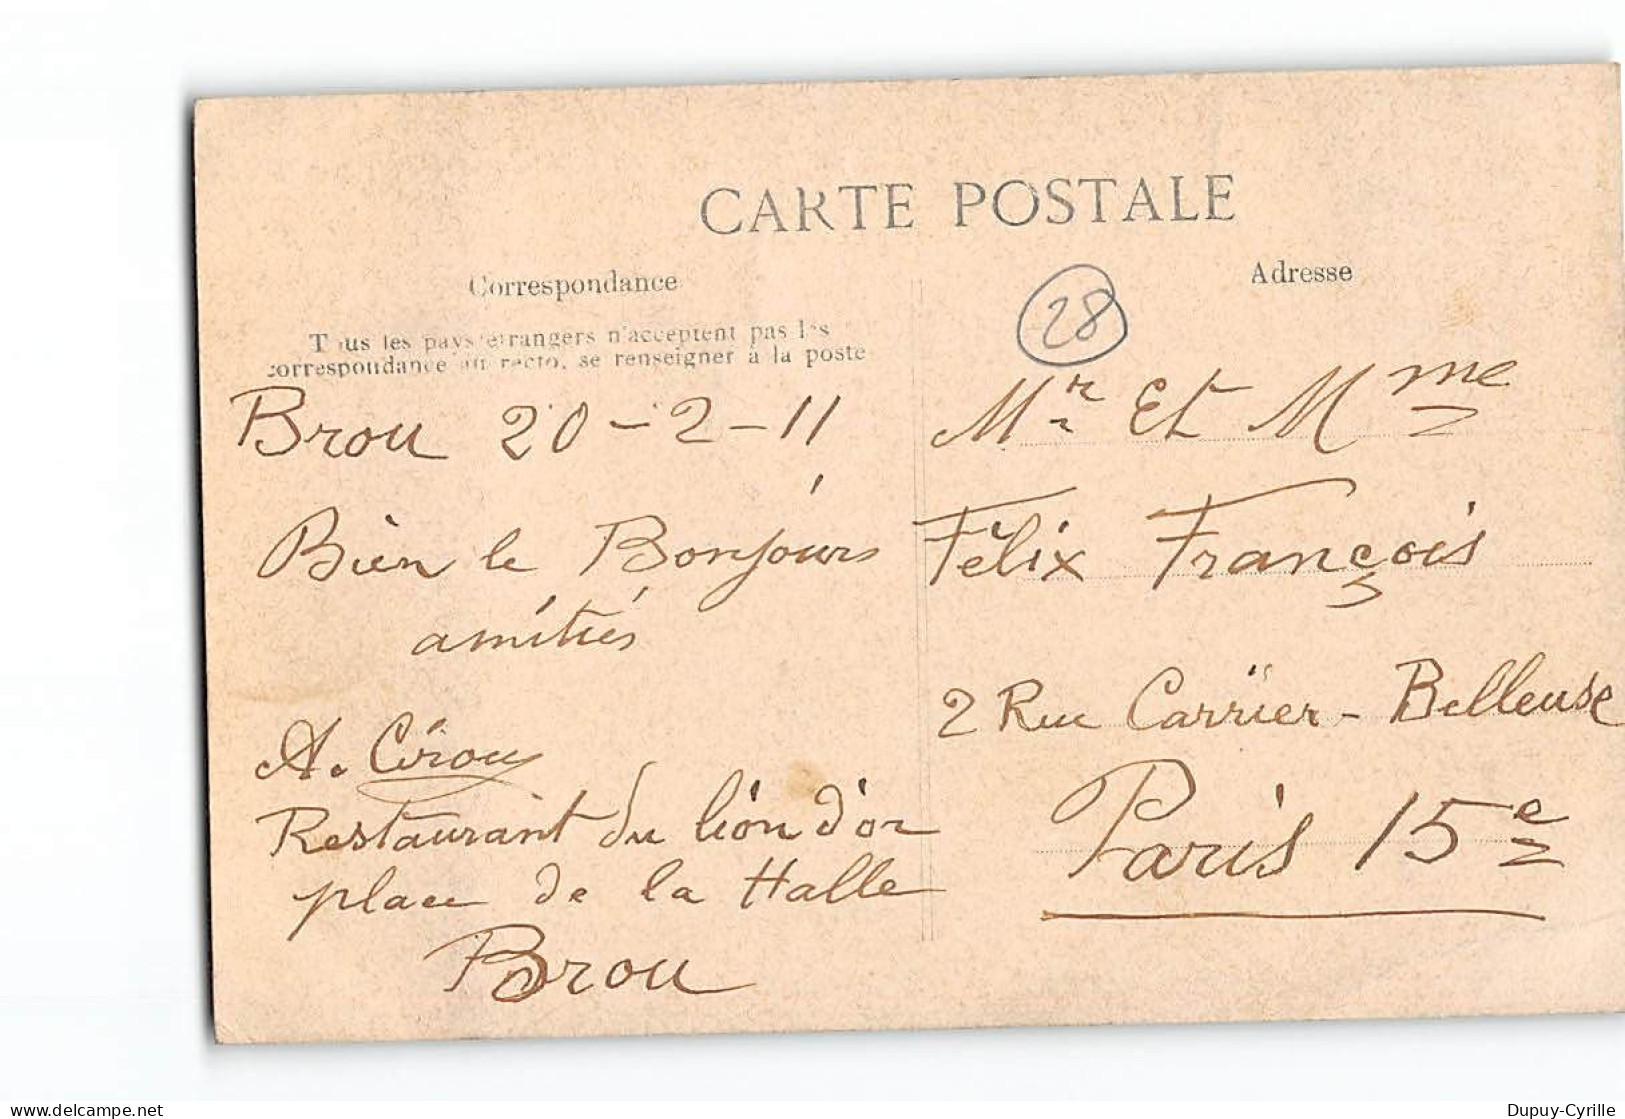 CARTE POSTALE
Correspondance
Tous les pays étrangers n'acceptent pas les
correspondance au recto, se renseigner à la poste
Brou 20-2-11
Bien le Bonjours
amitiés
A.
Restaurant du lion d'or
place de la Halle
Brou
Adresse
28
Mr Et Mme
Félix François
2 Rue Carrier-Belleuse
Paris 15e
Dupuy-Cyrille